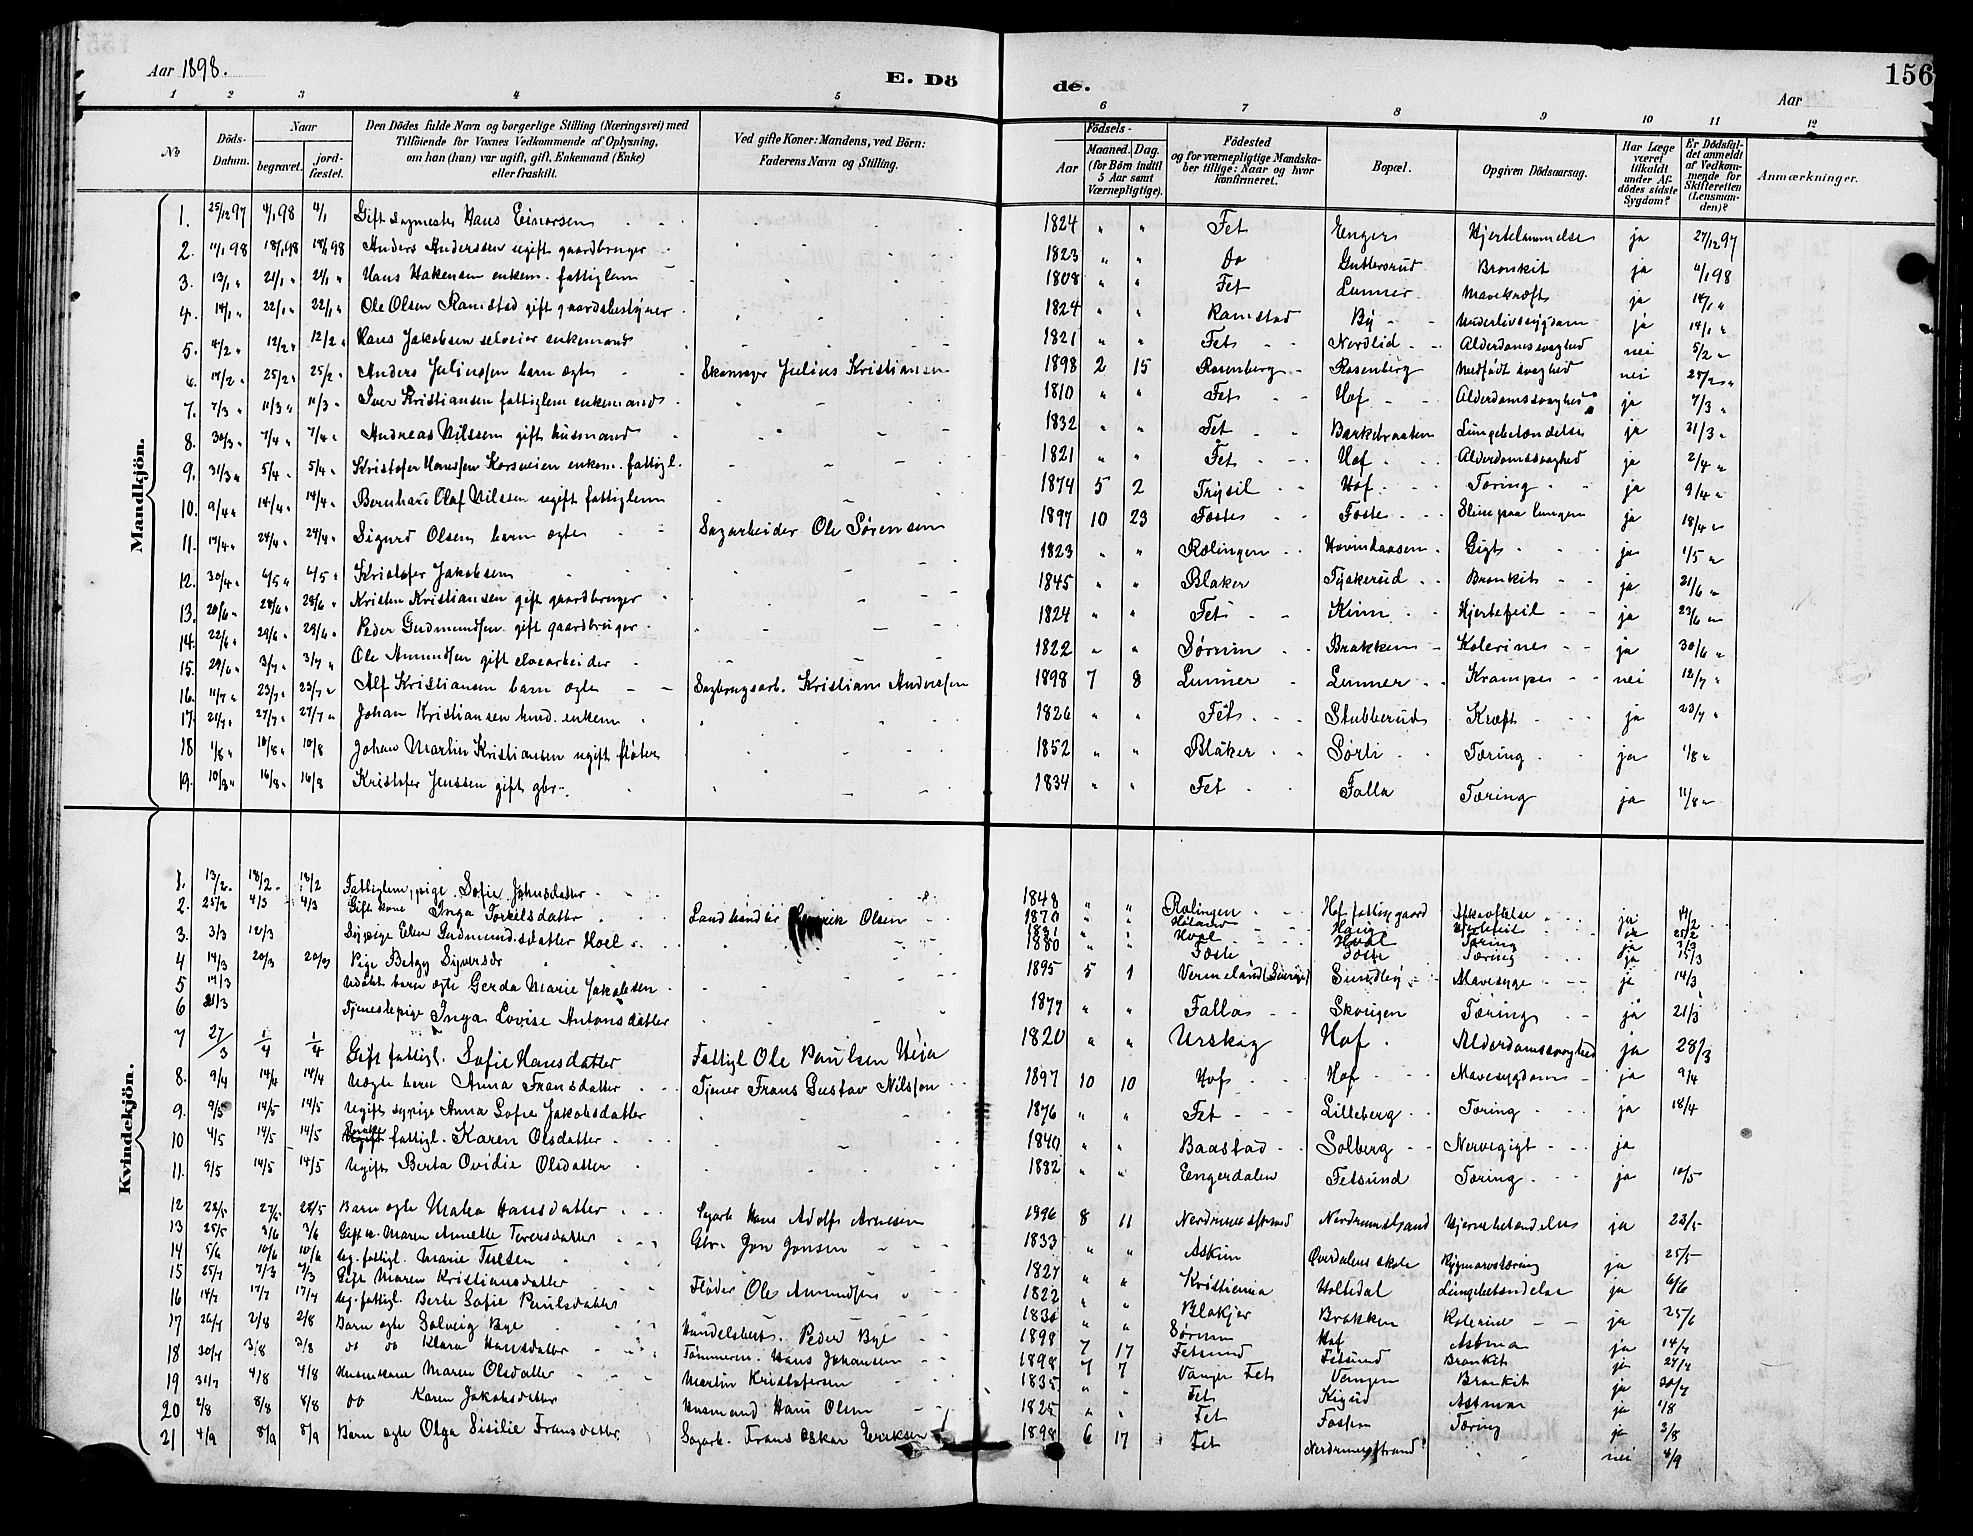 Aar 1898.
E. Dö
de.
Aar
156
1 2 3 4 5 6 7 8 9 10 11 12
No
Döds-Datum.
Naar
begravet.
jord-fæstet.
Den Dödes fulde Navn og borgerlige Stilling (Næringsvei) med
Tilföiende for Voxnes Vedkommende af Oplysning,
om han (hun) var ugift, gift, Enkemand (Enke)
eller fraskilt.
Ved gifte Koner: Mandens, ved Börn:
Faderens Navn og Stilling.
Födsels-
Aar
Maaned. Dag.
(for Börn indtil 5 Aar samt Værnepligtige).
Födested
og for værnepligtige Mandska-
ber tillige: Naar og hvor
konfirmeret.
Bopæl.
Opgiven Dödsaarsag.
Har Læge været tilkaldt under Af-dödes sidste Sygdom?
Er Dödsfal-det anmeldt af Vedkom-mende for Skifteretten (Lensman-den)?
Anmærkninger.
Mandkjön.
1. 25/12 97 4/1 98 4/1 Gift Hans Einarsen 1824 " " Fet Enger Hjertelammelse ja 27/12 97
2. 11/1 98 18/1 98 18/1 98 Anders Anderssen ugift gaardbruger 1823 " " Do Guttersrud Bronkit ja 11/1 98
3. 13/1 " 21/1 " 21/1 " Hans Hakensen enkem. fattiglem 1808 " " Fet Lunner Mavekræft ja 14/1 "
4. 14/1 " 22/1 " 22/1 " Ole Olsen Ramstad gift gaardsbestyrer 1824 " " Ramstad By Underlivssygdom ja 14/1 "
5. 4/2 " 12/2 " 12/2 " Hans Jakobsen selveier enkemand 1821 " " Fet Nordlid Alderdomssvaghed nei 5/2 "
6. 17/2 " 25/2 " 25/2 " Anders Juliussen barn ægte Skomager Julius Kristiansen 1898 2 15 Rosenberg Rosenberg Medfødt svaghed nei 25/2 "
7. 7/3 " 11/3 " 11/3 " Iver Kristiansen fattiglem enkemand 1810 " " Fet Hof Alderdomssvaghed ja 7/3 "
8. 30/3 " 7/4 " 7/4 " Andreas Nilssen gift husmand 1832 " " Fet Barkebraaten Lungebetændelse ja 21/3 "
9. 31/3 " 5/4 " 5/4 " Kristofer Hanssen Korsveien enkem. fattigl. 1821 " " Fet Hof Alderdomssvaghed ja 2/4 "
10. 9/4 " 14/4 " 14/4 " Bernhard Olaf Nilsen ugift fattiglem 1874 5 2 Trysil Hof Tæring ja 9/4 "
11. 17/4 " 24/4 " 24/4 " Sigurd Olsen barn ægte Sagarbeider Ole Sørensen 1897 10 23 Foste Foste Sliim paa lungen ja 18/4 "
12. 30/4 " 6/5 " 6/5 " Kristofer Jakobsen 1823 " " Rælingen Hovinhaasen Gigt ja 1/5 "
13. 20/6 " 28/6 " 28/6 " Kristen Kristiansen gift gaardbruger 1845 " " Blaker Tyskerud Bronkit ja 21/6 "
14. 22/6 " 29/6 " 29/6 " Peder Gudmundsen gift gaardbruger 1824 " " Fet Kinn Hjertefeil ja 23/6 "
15. 29/6 " 3/7 " 3/7 " Ole Amundsen gift elvearbeider 1822 " " Sørum Brakken Kolerine ja 30/6 "
16. 11/7 " 23/7 " 23/7 " Alf Kristiansen barn ægte Sagbrugsarb. Kristian Anderssen 1898 7 8 Lunner Lunner Krampe nei 12/7 "
17. 21/7 " 27/7 " 27/7 " Johan Kristiansen husm. enkem 1826 " " Fet Stubberud Kræft ja 23/7 "
18 1/8 " 10/8 " 10/8 Johan Martin Kristiansen ugift fløter 1852 " " Blaker Sørli Tæring ja 1/8 "
19. 10/8 " 16/8 " 16/8 Kristofer Jenssen gift gbr. 1834 " " Fet Falla Tæring ja 11/8 "
Kvindekjön.
1. 13/2 18/2 18/2 Fattiglem, pige. Sofie Johnsdatter 1848 " " Rælingen Hof fattiggaard Afkræftelse ja
2. 25/2 4/3 4/3 Gift kone Inga Torkelsdatter Landhandler Henrik Olsen 1870 " " Høland Hjertefeil 25/2
3. 3/3 12/3 Sypige Elen Gudmundsdatter Hoel 1831 " " Hval Hval Tæring ja
4 14/3 20/3 20/3 Pige Betzy Syversdr 1880 " " Foste Foste Tæring ja 15/3
5 14/3 barn ægte Gerda Marie Jakobsen 1895 5 1 Vermeland (Sverige) Sundby Mavesyge ja 14/3
6 21/3 Tjenestepige Inga Lovise Antonsdatter 1877 Falla Skovgen Tæring ja 21/3
7 27/3 1/4 1/4 Gift fattigl. Sofie Hansdatter Fattigl Ole Paulsen 1820 " " Urskog Hof Alderdomssvaghed ja 28/3
8. 9/4 14/4 14/4 Uægte barn Anna Fransdatter Tjener Frans Gustav Nilsson 1897 10 10 Hof Hof Mavesygdom ja 9/4
9. 9/5 14/5 14/5 Ugift sypige Anna Sofie Jakobsdatter 1876 " " Fet Lilleberg Tæring ja 18/4
10 4/5 14/5 14/5 fattigl. Karen Olsdatter 1840 " " Baastad Solberg Nervegigt ja
11. 9/5 14/5 14/5 Ugift Berta Ovidie Olsdatter 1882 " " Engerdalen Fetsund Tæring ja 10/5
12 22/5 27/5 28/5 Barn ægte Hansdatter Sgarb Hans Adolf Arnesen 1896 8 11 Nerdrumsstrand Nerdrumstrand Hjernebetændelse ja 23/5
13 25/5 3/6 3/6 Gift k. Maren Annette Iversdatter Gbr. Jon Jonsen 1833 " " Askim Øverdalens skole Rygmarvstæring ja 25/5
14 5/6 10/6 10/6 ug. fattigl. Marie 1827 " " Kristiania Holtedal Lungebetændelse ja 6/6
15 25/7 7/3 Gift Maren Kristiansdatter Fløder Ole Amundsen 1822 " " Blakjer Brakken Kolerine ja 25/6
16 14/7 17/7 17/7 ug. fattigl. Berte Sofie Paulsdatter 1830 Sørum Hof Astma ja 14/7
17 26/7 2/8 2/8 Barn ægte Solveig Bye Handelsbest. Peder Bye 1898 7 17 Fetsund Fetsund Bronkit ja 27/7
18 30/7 3/8 3/8 do do Klara Hansdatter Tømmerm. Hans Johansen 1898 7 7 Fet Vangen Bronkit ja 30/7
19 31/7 4/8 4/8 Husm.kone Maren Olsdatter Martin Kristofersen 1835 " " Fet Astma ja 1/8
20 2/8 8/8 8/8 do Karen Jakobsdatter Husmand Hans Olsen 1825 " " Fet Fossen Tæring ja 3/8
21 4/9 8/9 8/9 Barn ægte Olga Sisilie Fransdatter Sagarb. Frans Oskar Eriksen 1898 6 17 Fet Nerdrumsstrand nei 4/9